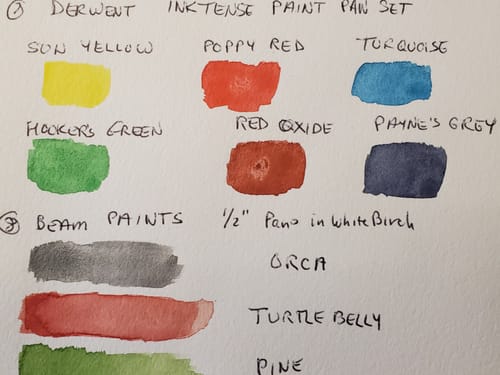 ① DERWENT INKTENSE PAINT PAN SET
SUN YELLOW POPPY RED TURQUOISE
HOOKER'S GREEN RED OXIDE PAYNE'S GREY
BEAM PAINTS 1/2" Pans in White Birch
ORCA
TURTLE BELLY
PINE